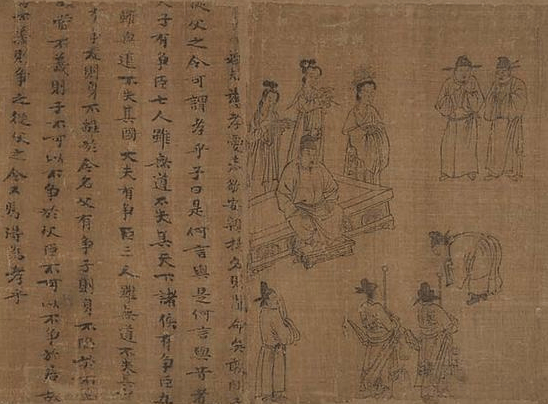 恭敬安親揚名則聞命矣敢問
從父之令可謂孝乎子曰是何言與是何言與昔者
天子有爭臣七人雖無道不失其天下諸侯有爭臣五
雖無道不失其國大夫有爭臣三人雖無道不失其家
士有爭友則身不離於令名父有爭子則身不陷於不
故當不義則子不可以不爭於父臣不可以不爭於君故
當不義則爭之從父之令又焉得為孝乎